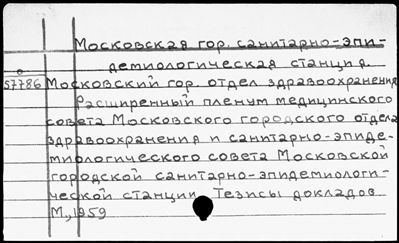 Московская гор. санитарно-эпи-
демиологическая станция.
57786 Московский гор. отдел здравоохранения
Расширенный пленум медицинского
совета Московского городского отдела
здравоохранения и санитарно-эпиде-
миологического совета Московской
городской санитарно-эпидемиологи-
ческой станции. Тезисы докладов
М., 1959